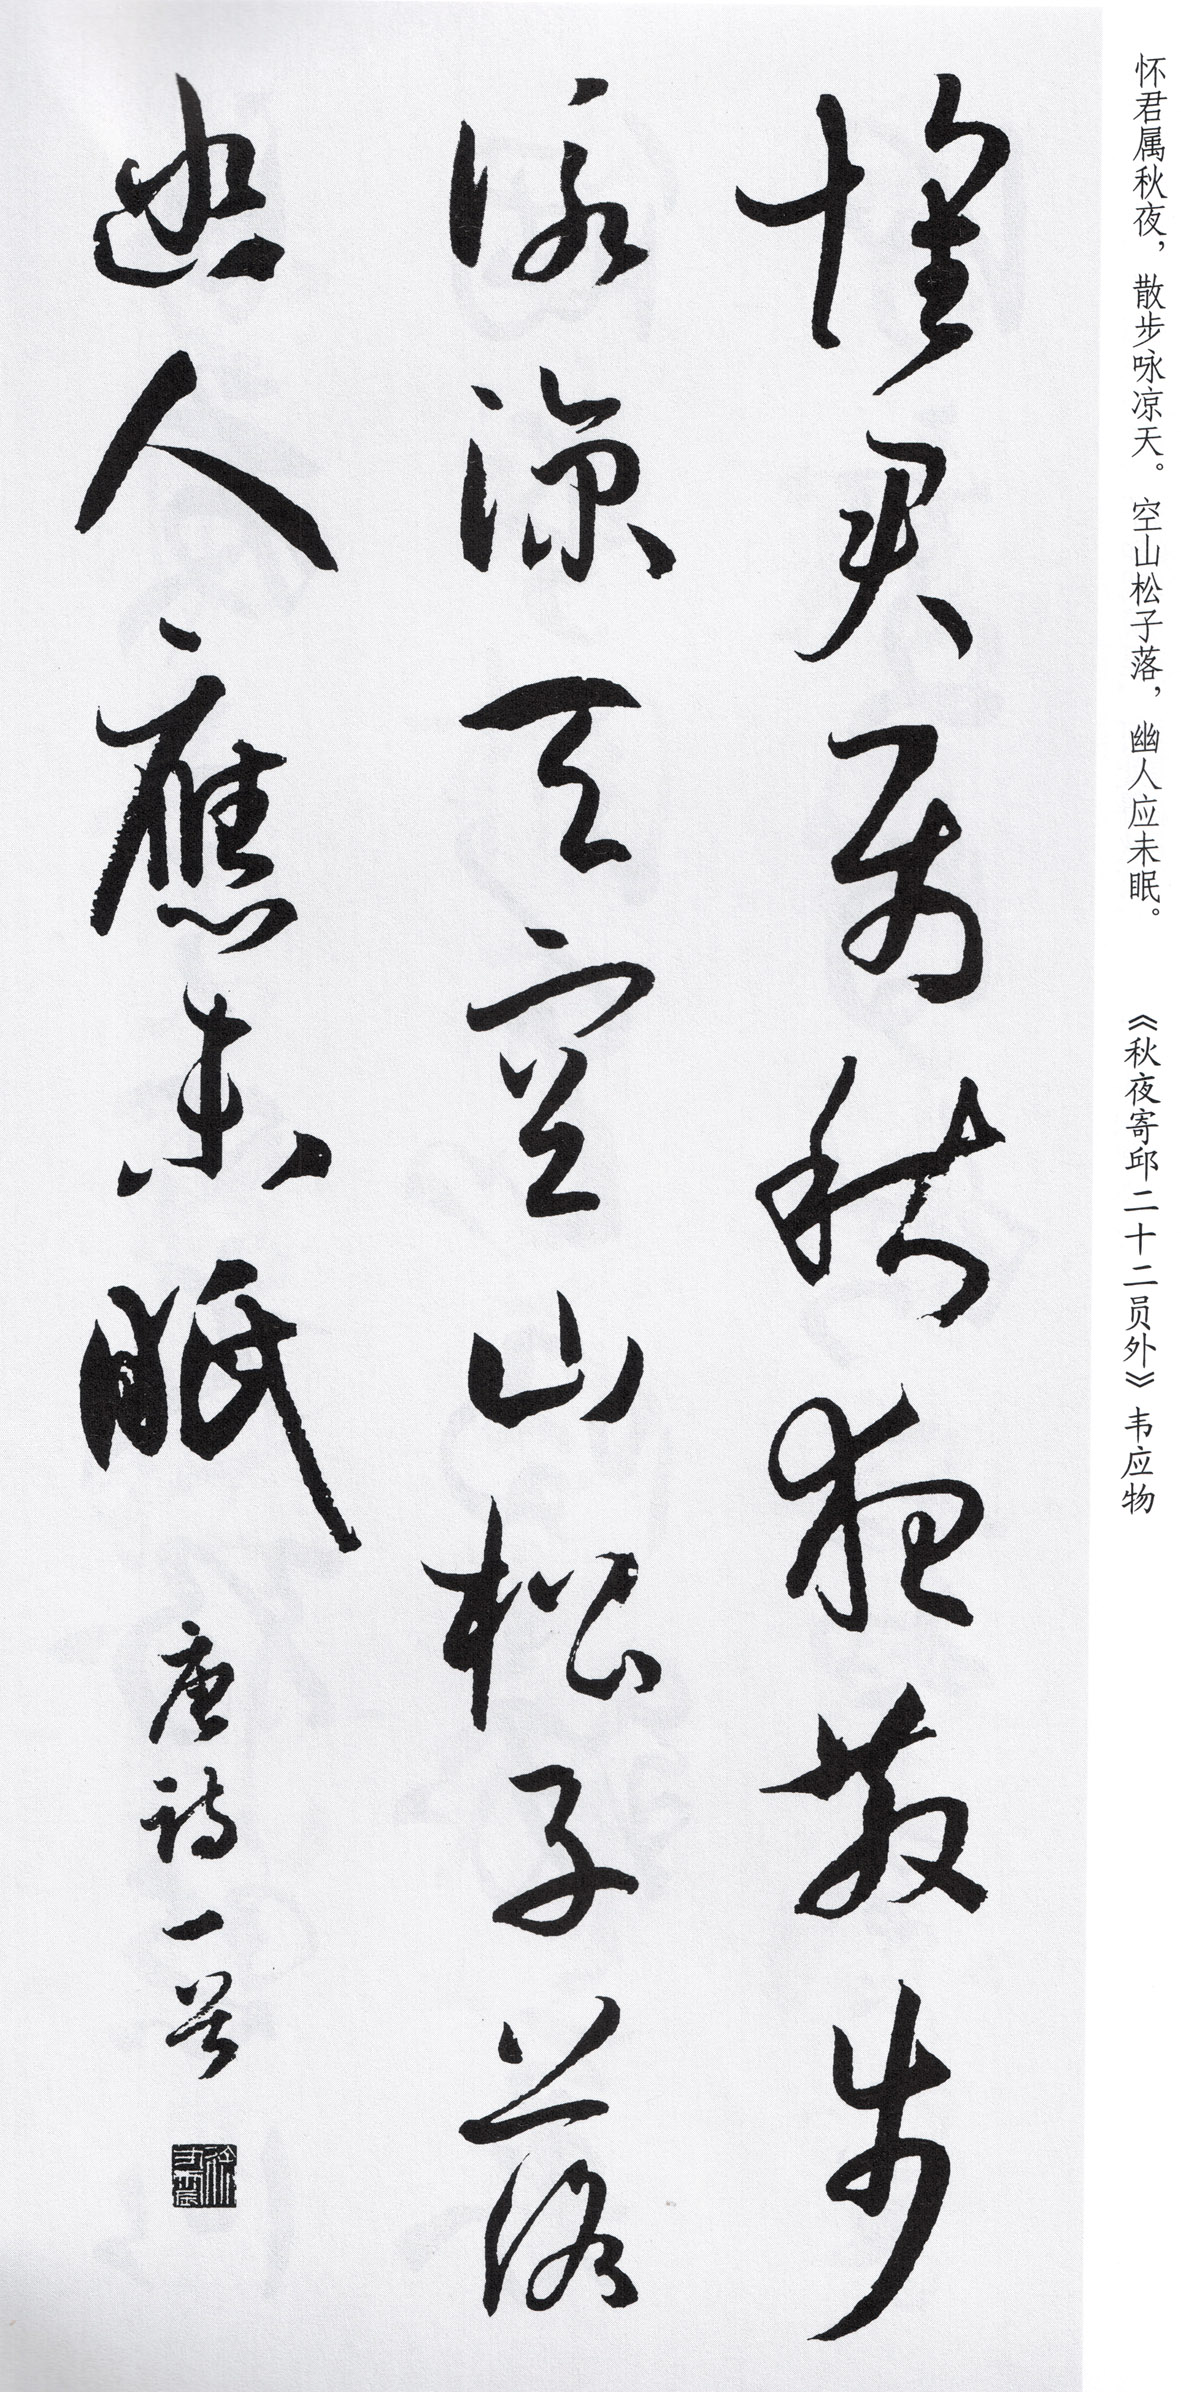 怀君属秋夜，散步咏凉天。空山松子落，幽人应未眠。 《秋夜寄邱二十二员外》韦应物
懷君屬秋夜散步
詠涼天空山松子落
幽人應未眠
唐詩一首